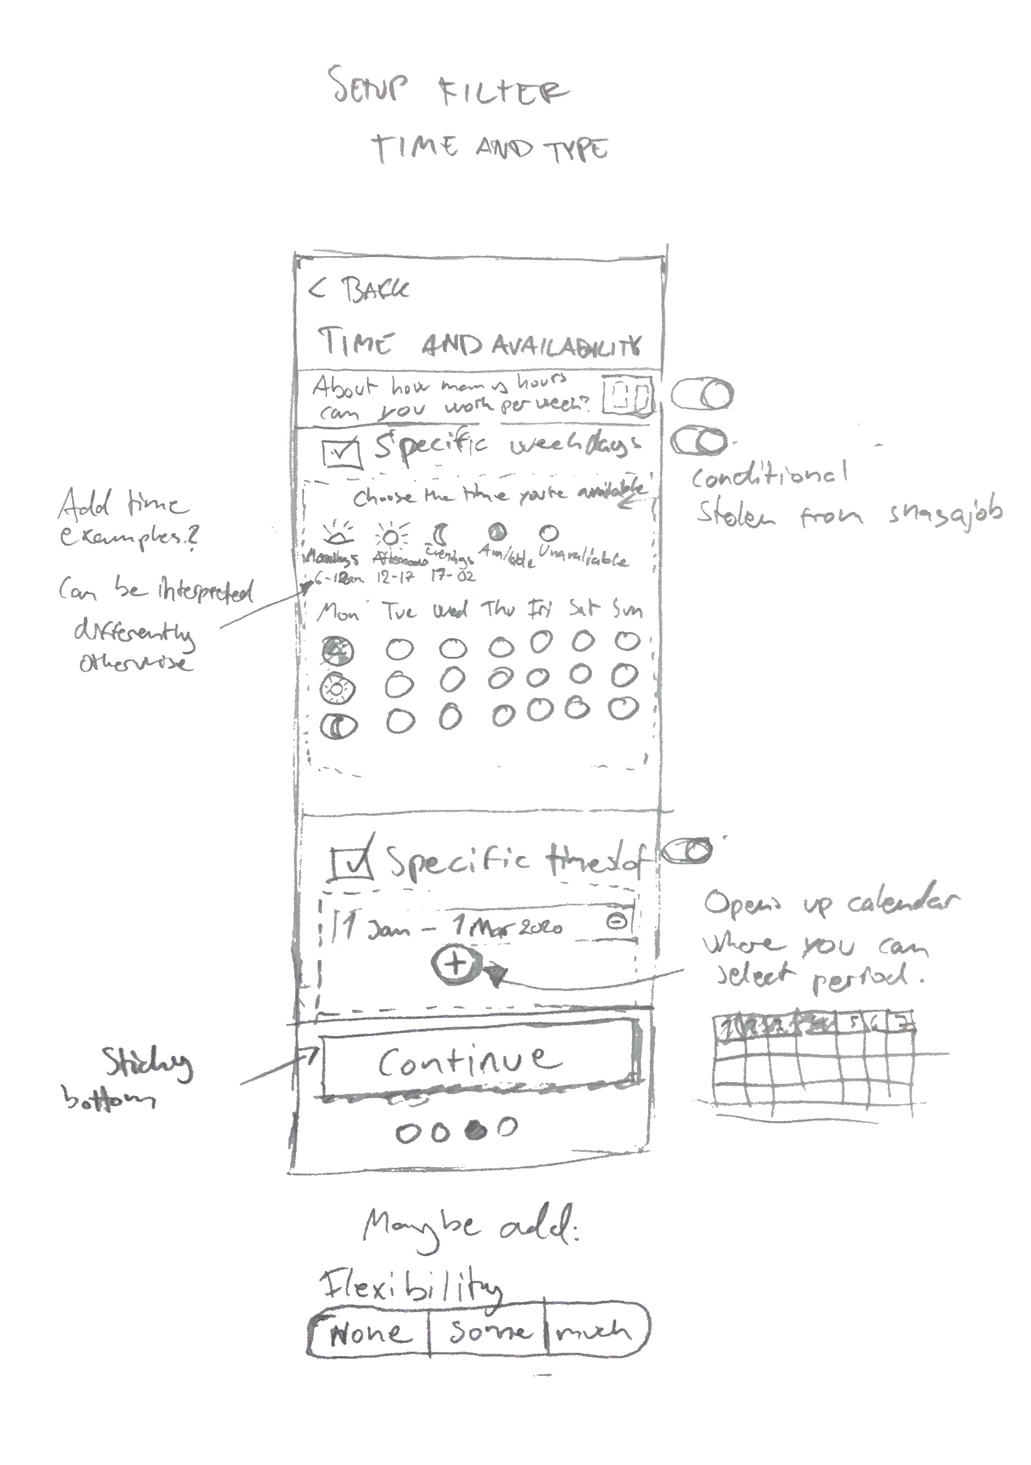 SETUP FILTER
TIME AND TYPE
< BACK
TIME AND AVAILABILITY
About how many hours
can you work per week?
Specific weekdays
conditional
Stolen from snagajob
Choose the time you're available
Add time
examples?
Mornings Afternoons Evenings Available Unavailable
6-12am 12-17 17-02
Can be interpreted
differently
otherwise
Mon Tue Wed Thu Fri Sat Sun
Specific times of
1 Jan - 1 Mar 2020
Opens up calendar
where you can
select period.
1 2 3 4 5 6 7
Sticky
bottom
Continue
Maybe add:
Flexibility
None some much